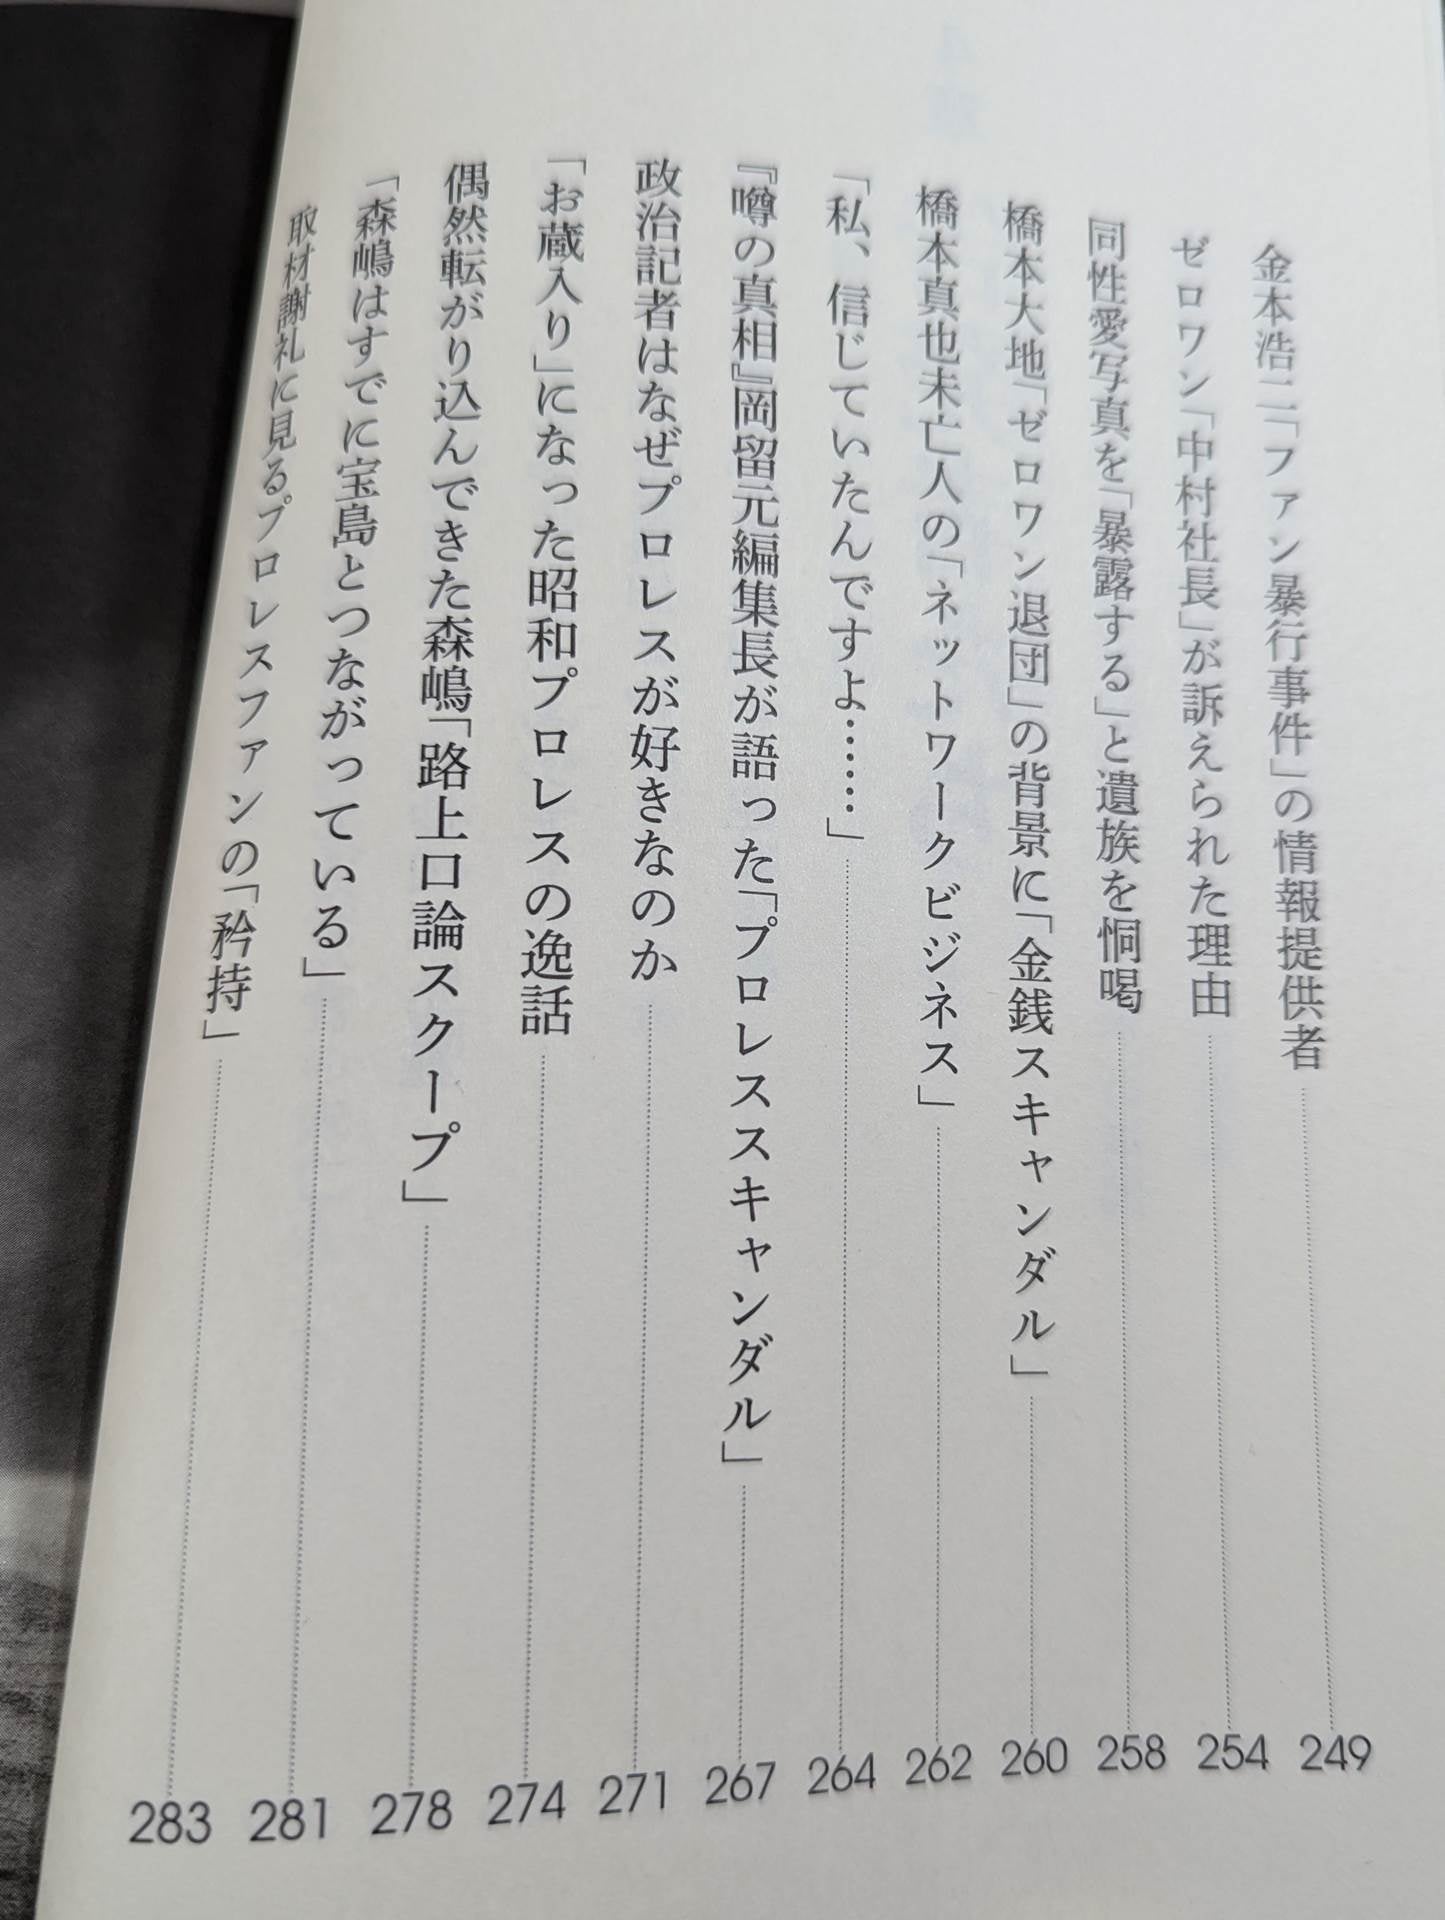 金本浩二「ファン暴行事件」の情報提供者 249
ゼロワン「中村社長」が訴えられた理由 254
同性愛写真を「暴露する」と遺族を恫喝 258
橋本大地「ゼロワン退団」の背景に「金銭スキャンダル」 260
橋本真也未亡人の「ネットワークビジネス」 262
「私、信じていたんですよ……」 264
『噂の真相』岡留元編集長が語った「プロレススキャンダル」 267
政治記者はなぜプロレスが好きなのか 271
「お蔵入り」になった昭和プロレスの逸話 274
偶然転がり込んできた森嶋「路上口論スクープ」 278
「森嶋はすでに宝島とつながっている」 281
取材謝礼に見るプロレスファンの「矜持」 283